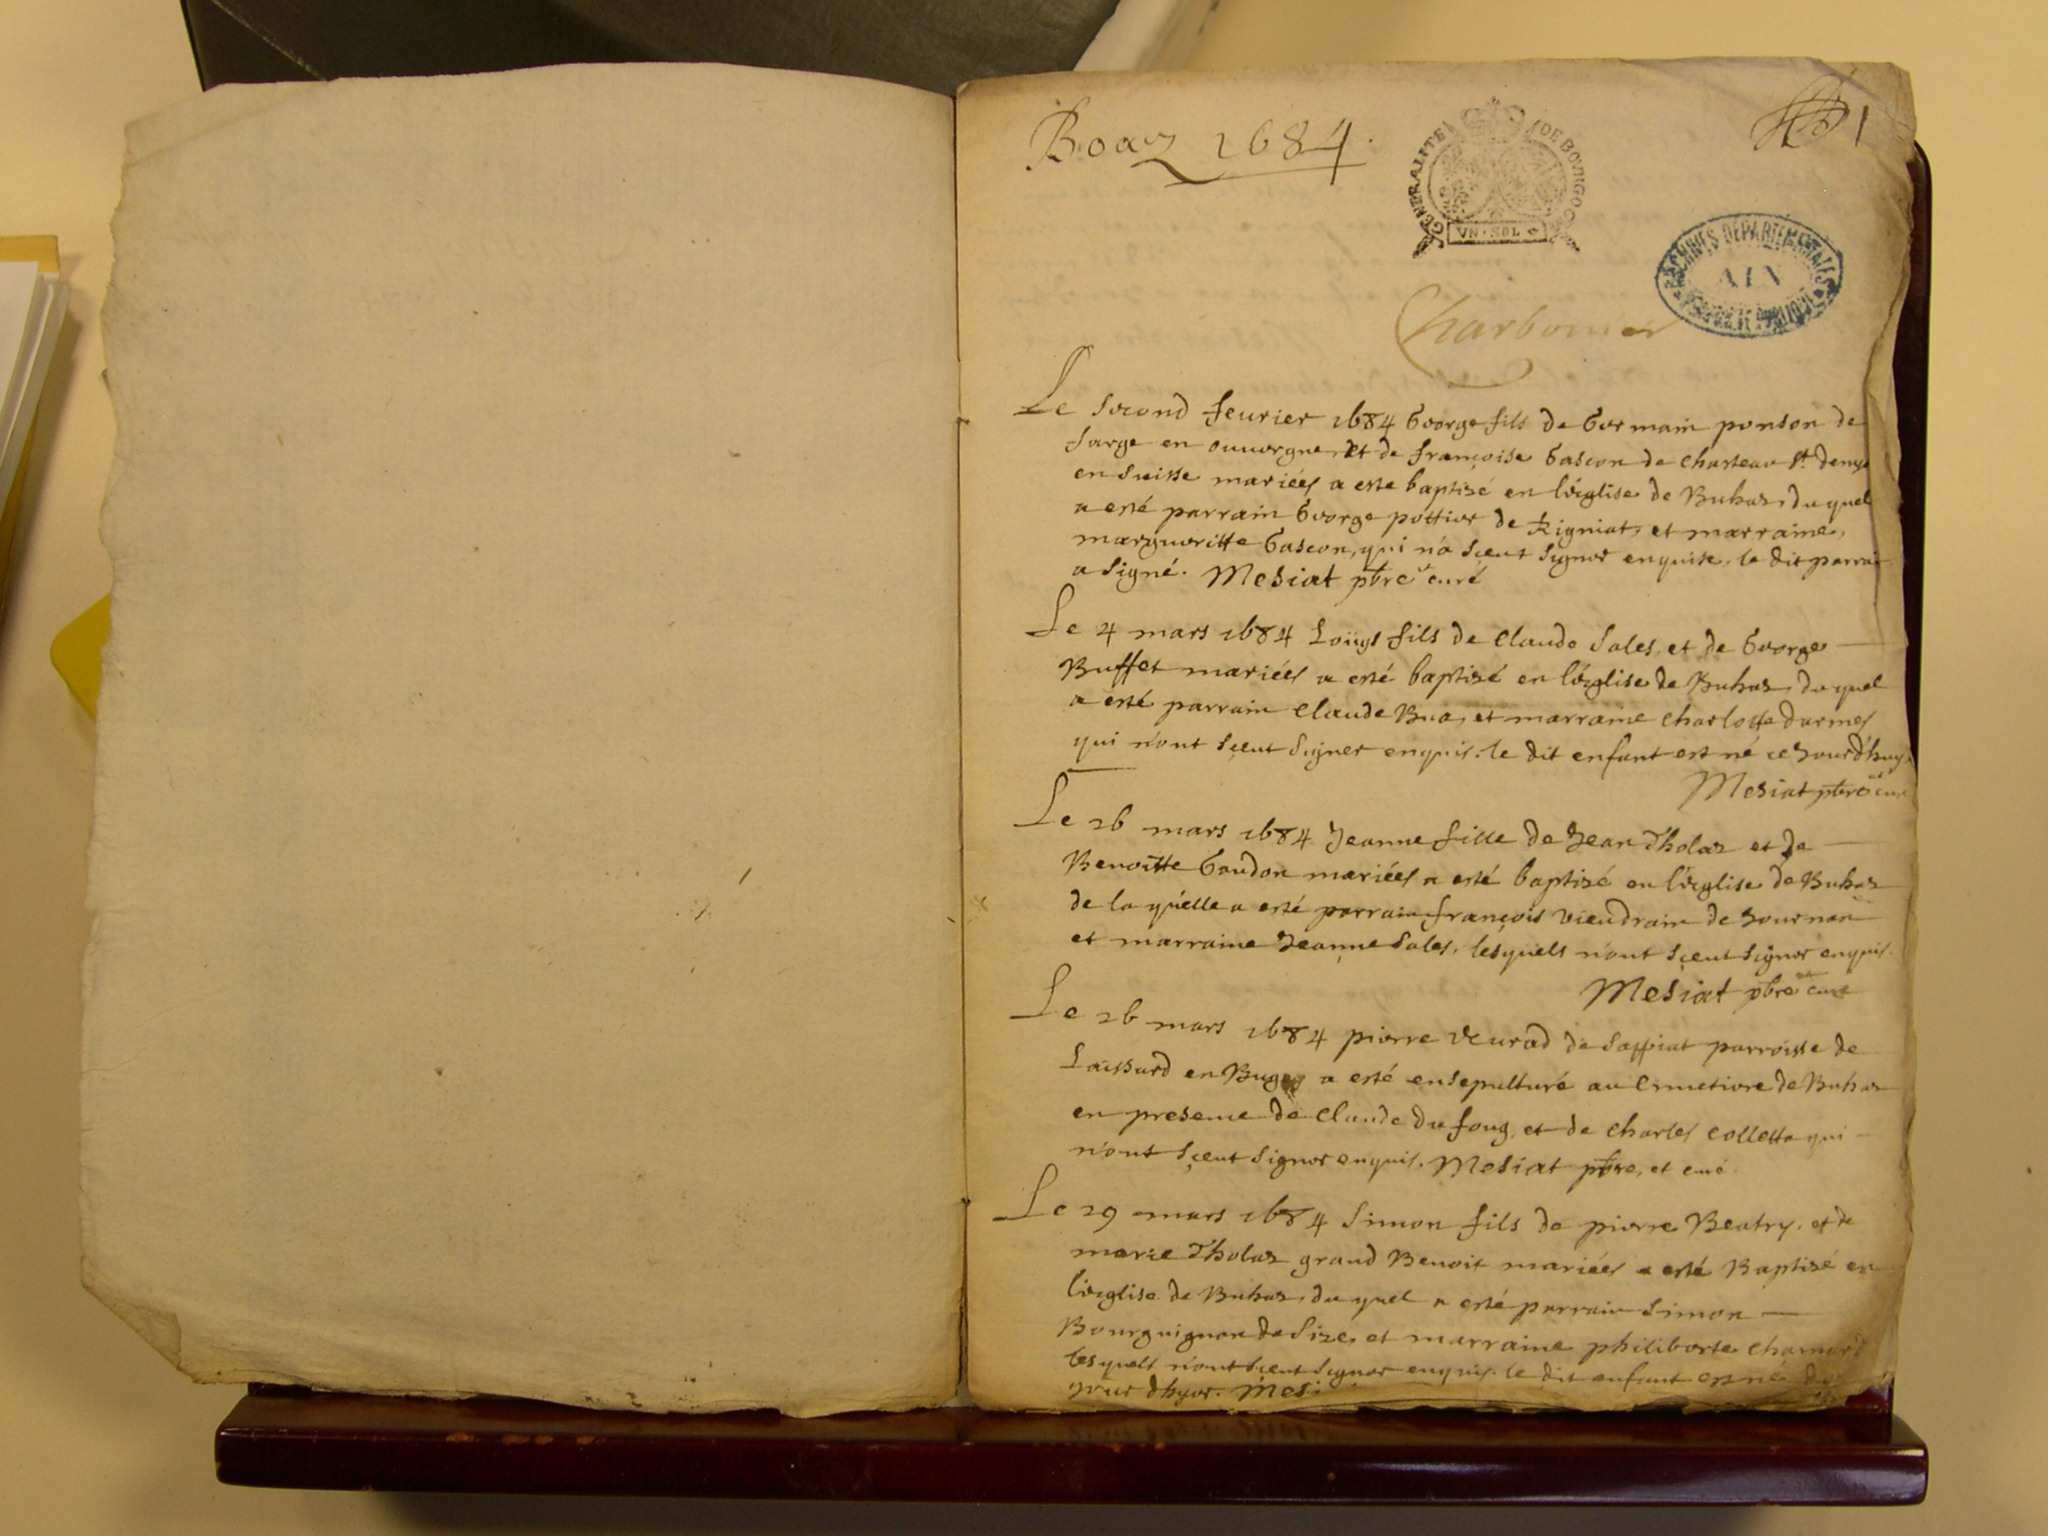 Boaz 1684.
1
GENERALITE DE BOURGOG
VN·SOL
ARCHIVES DEPARTEMENTALES
AIN
Charbonier
Le second feurier 1684 George fils de Germain ponson de
farge en ouuergne, et de françoise Gascon de chasteau st denys
en suisse mariées a este baptizé en l'eglise de Buhas, du quel
a esté parrain George pottier de Rigniat, et marraine,
margueritte Gascon, qui n'a sçeut signer enquise, le dit parrai
a signé. Mesiat pbre et curé
Le 4 mars 1684 Loüys fils de Claude Sales, et de George
Buffet mariées a esté baptizé en l'eglise de Buhas, du quel
a esté parrain Claude Bua, et marraine charlotte darmes
qui n'ont sçeut signer enquis. le dit enfant est né ce Jourd'huy
Mesiat pbre et cure
Le 26 mars 1684 Jeanne fille de Jean Tholas et de
Benoitte Goudon mariées a esté baptizé en l'eglise de Buhas
de la quelle a esté parrain françois vieudrain de Journan
et marraine Jeanne Sales, lesquels n'ont sçeut signer enquis.
Mesiat pbre et curé
Le 26 mars 1684 pierre de sappiat parroisse de
Laissard en Bugey a esté ensepulturé au Cimetiere de Buhas
en presence de Claude Du foug, et de Charles Collette qui
n'ont sçeut signer enquis. Mesiat pbre, et curé
Le 29 mars 1684 Simon fils de pierre Beatry, et de
marie Tholas grand Benoit mariées a esté Baptizé en
l'eglise de Buhas, du quel a esté parrain Simon
Bourguignon de Size, et marraine philiberte chanard
lesquels n'ont sçeut signer enquis. le dit enfant est né du
jour d'hyer. Mes